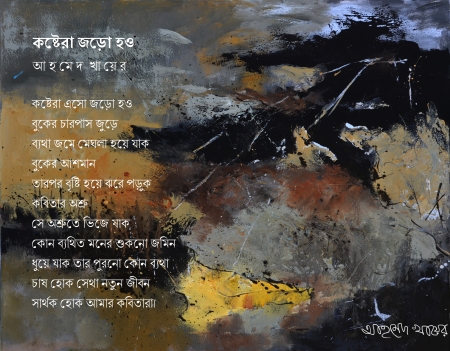 কষ্টেরা জড়ো হও
আ হ মে দ খা য়ে র
কষ্টেরা এসো জড়ো হও
বুকের চারপাস জুড়ে
ব্যথা জমে মেঘলা হয়ে যাক
বুকের আশমান
তারপর বৃষ্টি হয়ে ঝরে পড়ুক
কবিতার অশ্রু
সে অশ্রুতে ভিজে যাক
কোন ব্যথিত মনের শুকনো জমিন
ধুয়ে যাক তার পুরনো কোন ব্যথা
চাষ হোক সেথা নতুন জীবন
সার্থক হোক আমার কবিতারা॥
আহমেদ খায়ের